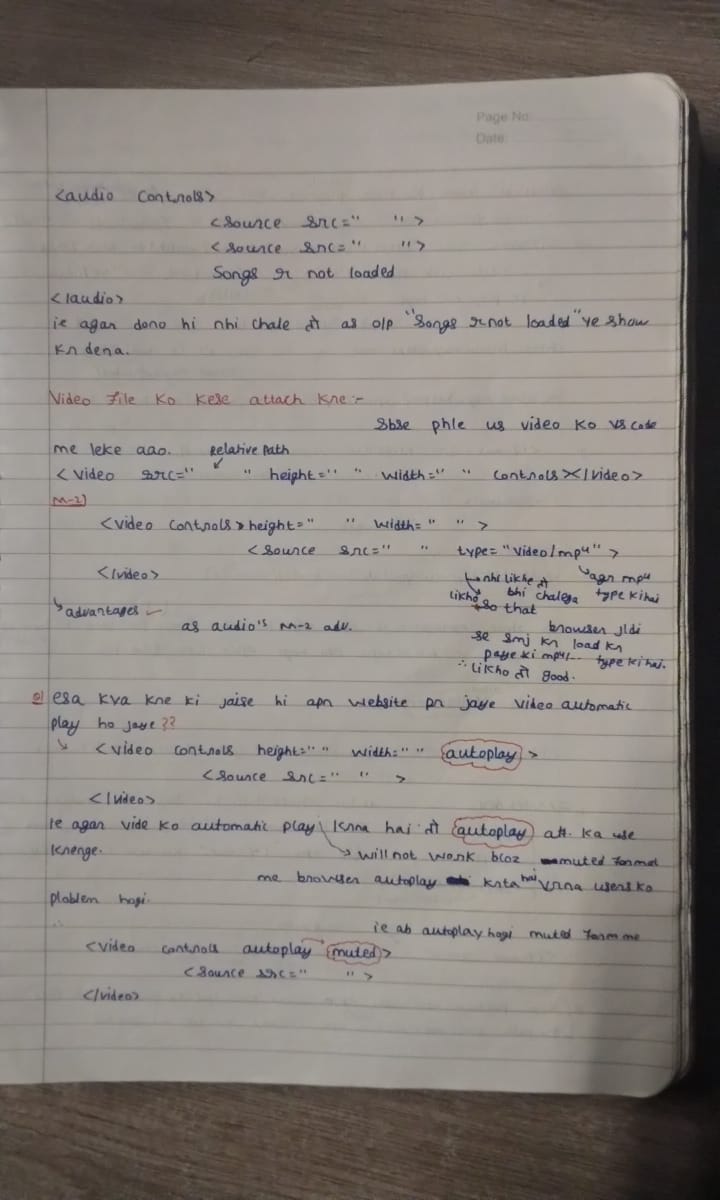 Page No.
Date:
<audio controls>
<source src=" ">
<source src=" ">
Songs r not loaded
</audio>
ie agar dono hi nhi chale तो as o/p "Songs r not loaded" ye show
kr dena.
Video file ko kese attach kre :-
Sbse phle us video ko VS code
me leke aao. Relative Path
<video src=" " height=" " width=" " controls></video>
M-2)
<video controls height=" " width=" ">
<source src=" " type="video/mp4">
</video>
nhi likhe तो bhi chalega
agr mp4 type ki hai
advantages
as audio's M-2 adv.
likho so that
browser jldi
se smj kr load kr
paye ki mp4 type ki hai.
∴ likho तो good.
Q) esa kya kre ki jaise hi apn website pr jaye video automatic
play ho jaye ??
<video controls height=" " width=" " autoplay>
<source src=" ">
</video>
ie agar vide ko automatic play krna hai तो autoplay att. ka use
krenge.
will not work bcoz muted format
me browser autoplay krta hai vrna users ko
ploblem hogi.
ie ab autoplay hogi muted form me
<video controls autoplay muted>
<source src=" ">
</video>